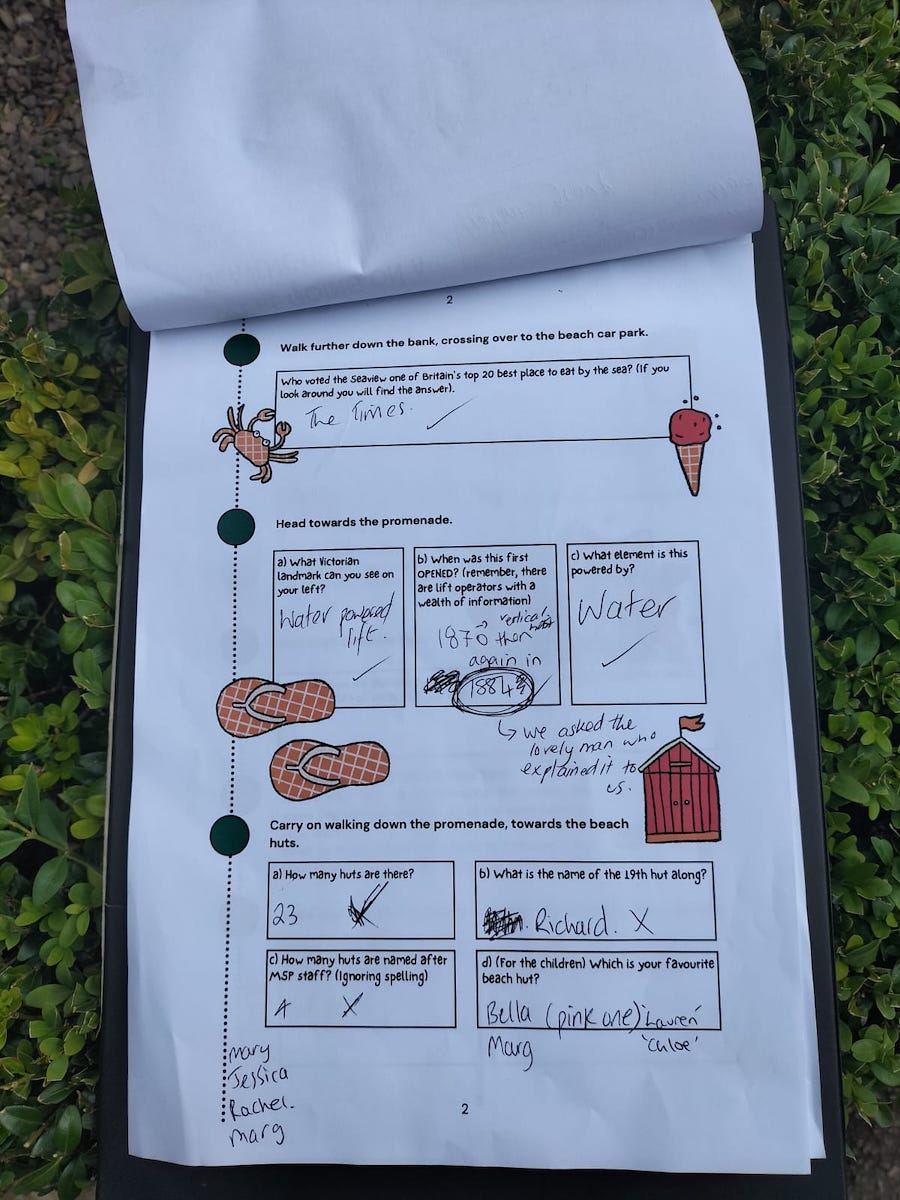 2
Walk further down the bank, crossing over to the beach car park.
Who voted the Seaview one of Britain's top 20 best place to eat by the sea? (If you
look around you will find the answer).
The Times.
Head towards the promenade.
a) What Victorian
landmark can you see on
your left?
Water powered
lift.
b) When was this first
OPENED? (remember, there
are lift operators with a
wealth of information)
1870 → vertical
then
again in
1884
c) What element is this
powered by?
Water
↳ we asked the
lovely man who
explained it to
us.
Carry on walking down the promenade, towards the beach
huts.
a) How many huts are there?
23
b) What is the name of the 19th hut along?
Richard. X
c) How many huts are named after
MSP staff? (Ignoring spelling)
4 X
d) (For the children) Which is your favourite
beach hut?
Bella (pink one) 'Lauren'
Marg 'Chloe'
mary
Jessica
Rachel.
marg
2